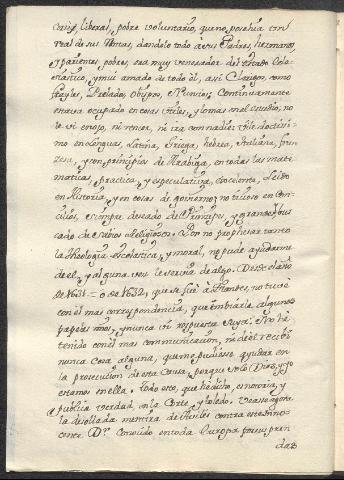 liberal, pobre voluntario, que no posehia con
real de sus Rentas, dandolo todo a sus Padres, hermanos,
y parientes pobres, era muy venerador del estado Ecle-
siastico, y mui amado de todo èl, asi Clerigos, como
frayles, Prelados, Obispos, y Nuncios. Continuamente
estava ocupado en cosas utiles, y lo mas en el estudio; no
le vi enojo, ni rencor, ni ira con nadie. fue doctissi-
mo en lenguas, latina, Griega, hebrea, Italiana, fran-
zesa, y con principios de Arabiga, en todas las mate-
maticas, practica, y especulativa, excelente, Leido
en Historia, y en cosas de govierno; no tuvo en Con-
cilios, siempre deseado de Principes y grandes, bus-
cado de sabios Religiosos. Por no prophesar tanto
la theologia Escolastica, y moral, no pude ayudarme
de el, y alguna vez le servia de algo. Desde el año
de 1631 = o de 1632, que se fuè à Flandes, no tuve
con èl mas correspondencia, que embiarle algunos
papeles mios, y nunca vi respuesta suya. No hè
tenido con èl mas communicacion, ni de èl recibi
nunca cosa alguna, que no pudiesse ayudar en
la prosecucion de esta Causa, porque solo Dios, y yo
estamos en ella. Todo esto, que hè dicho, es notorio, y
publica verdad, en la Corte, y toledo. Vease agora
la desollada mentira de Aviles contra este Ino-
cente Dr. Conocido en toda Europa por sus pren
das